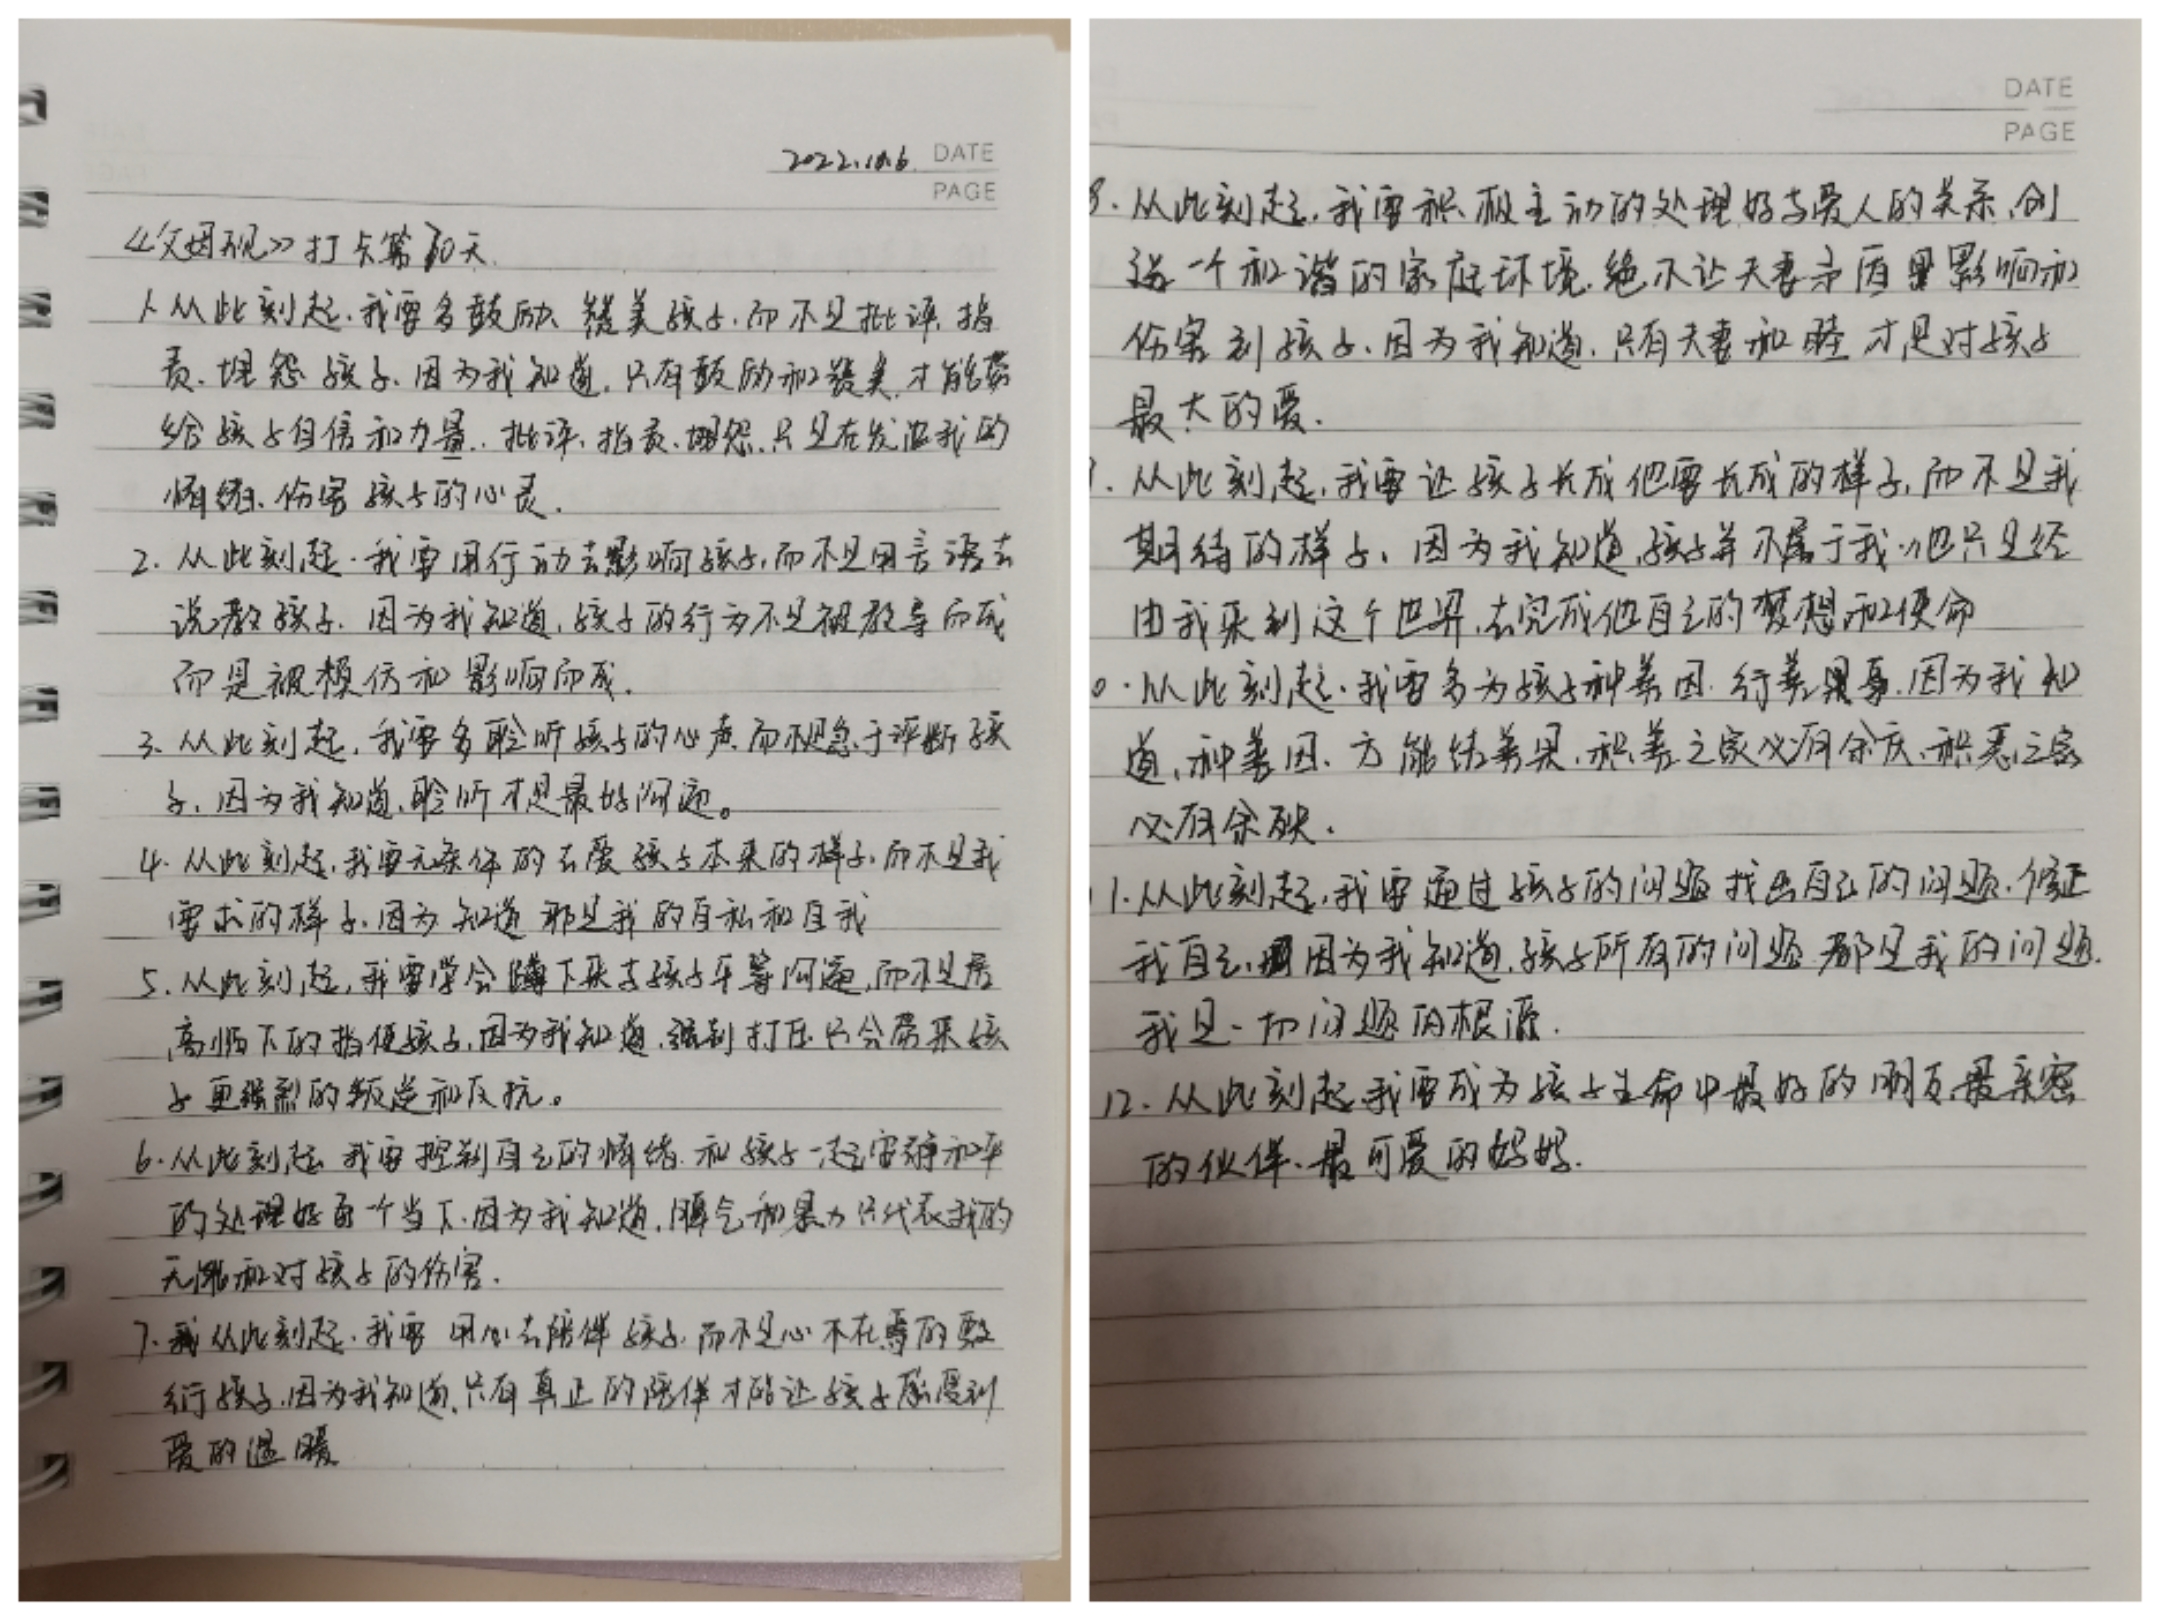 2022.10.6 DATE
PAGE
《父母规》打卡第70天.
1. 从此刻起.我要多鼓励、赞美孩子.而不是批评.指
责.埋怨孩子.因为我知道.只有鼓励和赞美.才能带
给孩子自信和力量.批评.指责.埋怨.只是在发泄我的
情绪.伤害孩子的心灵.
2. 从此刻起.我要用行动去影响孩子,而不是用言语去
说教孩子.因为我知道.孩子的行为不是被教导而成
而是被模仿和影响而成.
3. 从此刻起,我要多聆听孩子的心声.而不是急于评断孩
子.因为我知道.聆听才是最好沟通。
4. 从此刻起.我要无条件的去爱孩子本来的样子.而不是我
要求的样子.因为知道那是我的自私和自我
5. 从此刻起,我要学会蹲下来与孩子平等沟通,而不是居
高临下的指使孩子.因为我知道.强制打压只会带来孩
子更强烈的叛逆和反抗。
6. 从此刻起 我要控制自己的情绪.和孩子一起安静和平
的处理好每一个当下.因为我知道.脾气和暴力只代表我的
无能和对孩子的伤害.
7. 从此刻起.我要用心去陪伴孩子.而不是心不在焉的敷
衍孩子.因为我知道.只有真正的陪伴才能让孩子感受到
爱的温暖
DATE
PAGE
8. 从此刻起.我要积极主动的处理好与爱人的关系.创
造一个和谐的家庭环境.绝不让夫妻矛盾影响和
伤害到孩子.因为我知道.只有夫妻和睦才是对孩子
最大的爱.
. 从此刻起.我要让孩子长成他要长成的样子,而不是我
期待的样子.因为我知道.孩子并不属于我.他只是经
由我来到这个世界.去完成他自己的梦想和使命
0. 从此刻起.我要多为孩子种善因.行善事.因为我知
道.种善因.方能结善果.积善之家必有余庆.积恶之家
必有余殃.
1. 从此刻起,我要通过孩子的问题找出自己的问题.修正
我自己.因为我知道.孩子所有的问题都是我的问题.
我是一切问题的根源.
12. 从此刻起.我要成为孩子生命中最好的朋友.最亲密
的伙伴.最可爱的妈妈.